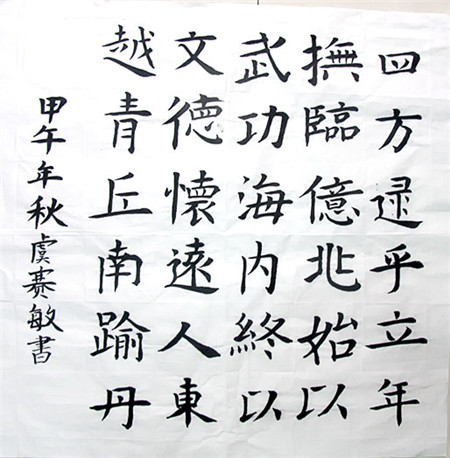 四方逮乎立年
撫臨億兆始以
武功海内終以
文徳懷遠人東
越青丘南踰丹
甲午年秋虞赛敏書